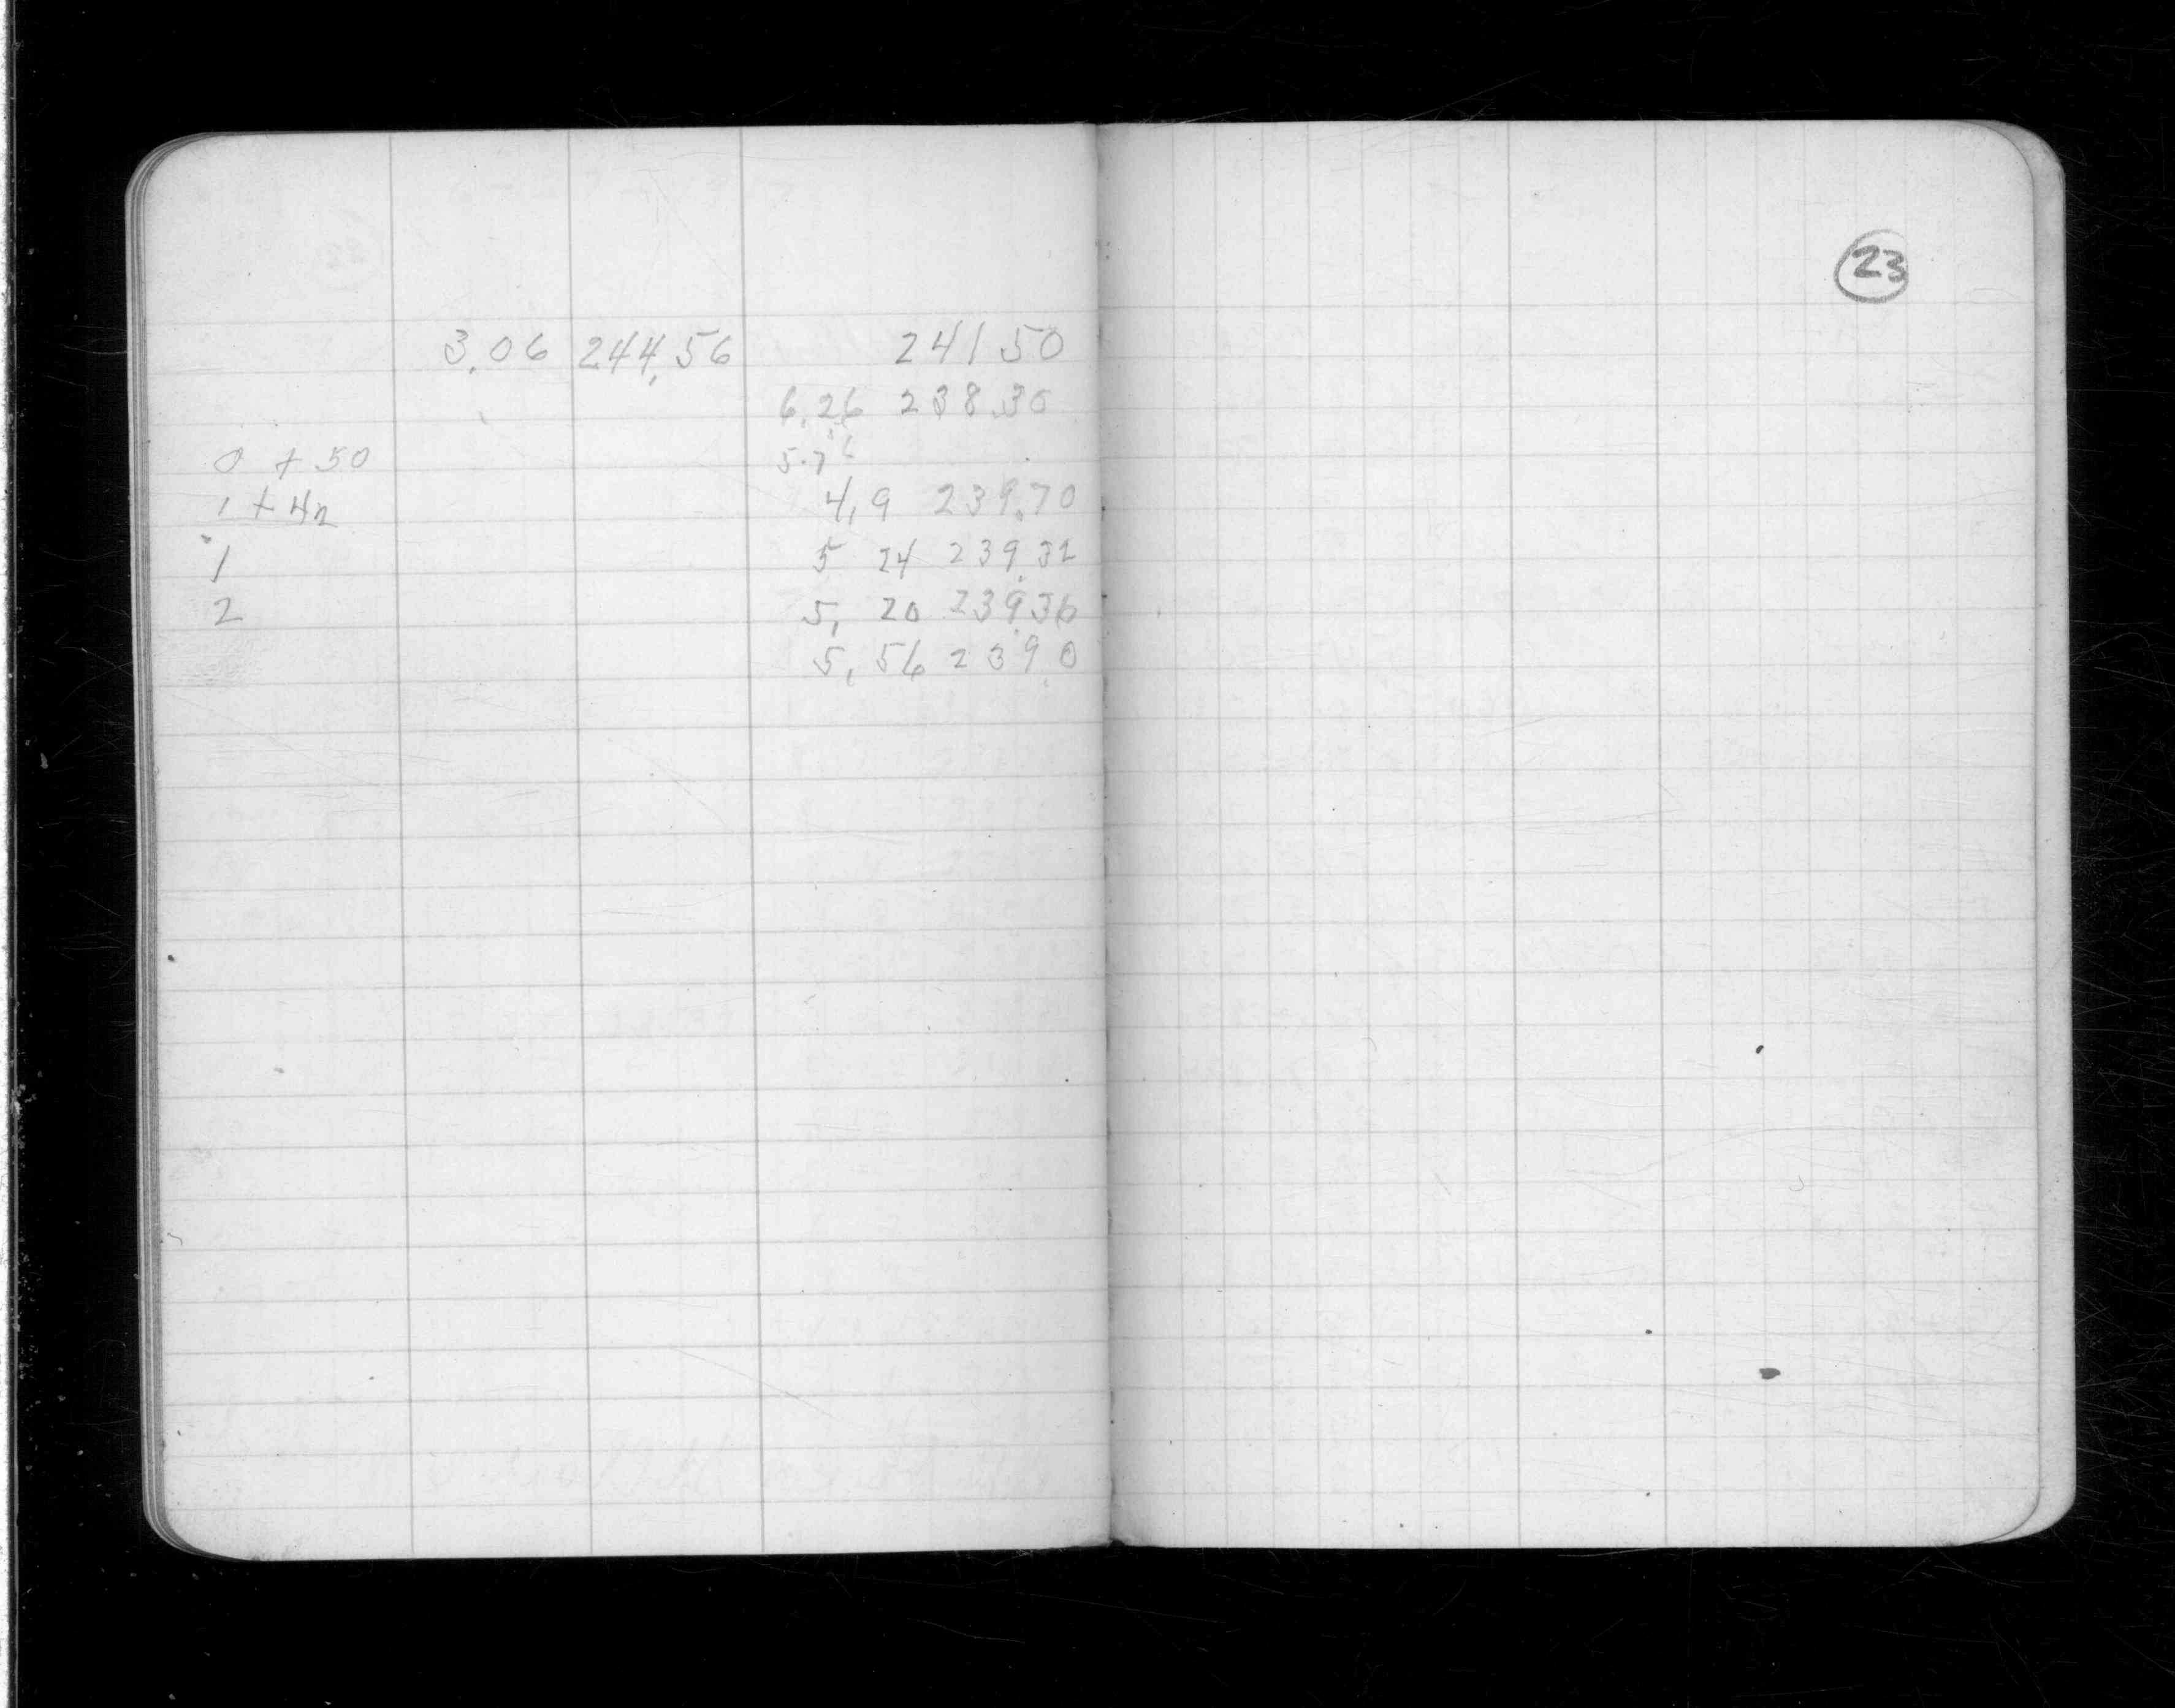 23
3.06 244.56 241 50
6.26 238.30
0 + 50 5.7
1 + 42 4.9 239.70
1 5 24 239.32
2 5. 20 239.36
5. 56 239.0